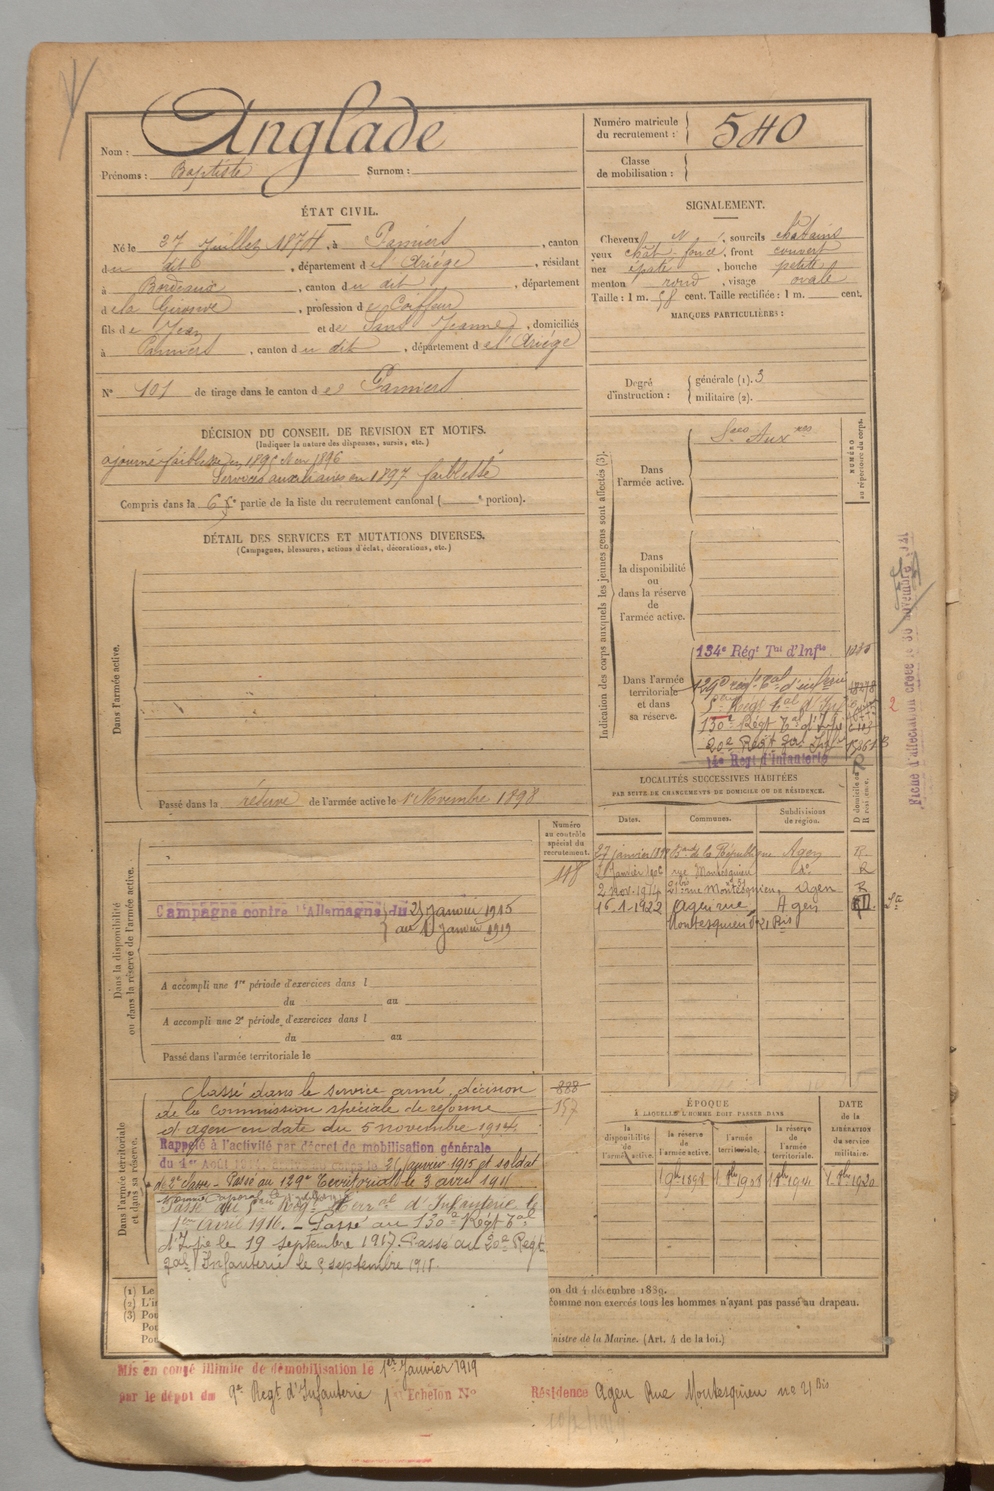 Nom : Anglade
Prénoms : Baptiste Surnom :
Numéro matricule du recrutement : 540
Classe de mobilisation :
ÉTAT CIVIL.
Né le 27 Juillet 1874, à Pamiers, canton
du dit, département de l'Ariège, résidant
à Bordeaux, canton du dit, département
de la Gironde, profession de Coiffeur
fils de Jean et de Sans Jeanne, domiciliés
à Pamiers, canton du dit, département de l'Ariège
N° 101 de tirage dans le canton de Pamiers
SIGNALEMENT.
Cheveux N, sourcils châtains
yeux chât. foncé, front couvert
nez épaté, bouche petite
menton rond, visage ovale
Taille : 1 m. 58 cent. Taille rectifiée : 1 m. cent.
MARQUES PARTICULIÈRES :
Degré d'instruction : générale (1). 3
militaire (2).
DÉCISION DU CONSEIL DE REVISION ET MOTIFS.
(Indiquer la nature des dispenses, sursis, etc.)
ajourné faiblesse en 1895 et en 1896
Services auxiliaires en 1897 faiblesse
Compris dans la 6e partie de la liste du recrutement cantonal ( e portion).
DÉTAIL DES SERVICES ET MUTATIONS DIVERSES.
(Campagnes, blessures, actions d'éclat, décorations, etc.)
Dans l'armée active.
Passé dans la réserve de l'armée active le 1er Novembre 1898
Indication des corps auxquels les jeunes gens sont affectés (3).
NUMÉRO au répertoire du corps.
Dans l'armée active.
Sces Auxres
Dans la disponibilité ou dans la réserve de l'armée active.
Dans l'armée territoriale et dans sa réserve.
134e Régt Tal d'Infie
129e régt Tal d'infanterie
5e Régt Tal d'Inf
130e Régt Tal d'Infie
20e Régt Tal Infie
14e Regt d'Infanterie
Fiche d'affectation créée le 30 novembre
LOCALITÉS SUCCESSIVES HABITÉES
PAR SUITE DE CHANGEMENTS DE DOMICILE OU DE RÉSIDENCE.
Dates. Communes. Subdivisions de région. D domicile ou R résidence.
27 janvier Bd de la République Agen R
rue Montesquieu do R
2 nov. 1914 21bis rue Montesquieu Agen R
16-1-1922 Agen rue Agen
Montesquieu 21 Bis
Dans la disponibilité ou dans la réserve de l'armée active.
Numéro au contrôle spécial du recrutement.
118
Campagne contre l'Allemagne du 25 Janvier 1915
au 1 Janvier 1919
A accompli une 1re période d'exercices dans l
du au
A accompli une 2e période d'exercices dans l
du au
Passé dans l'armée territoriale le
Dans l'armée territoriale et dans sa réserve.
Classé dans le service armé, décision 888
de la Commission spéciale de réforme 157
d'agen en date du 5 novembre 1914.
Rappelé à l'activité par décret de mobilisation générale
du 1er Août 26 janvier 1915 et soldat
de 2e classe - Passé au 129e Territorial le 3 avril
Passé au 5e Régt Terral d'Infanterie le
1er avril 1916. — Passé au 130e Régt Tal
d'Infie le 19 septembre 1917. Passé au 20e Regt
Tal Infanterie le septembre 1918.
ÉPOQUE
À LAQUELLE L'HOMME DOIT PASSER DANS
la disponibilité de l'armée active.
la réserve de l'armée active.
l'armée territoriale.
la réserve de l'armée territoriale.
DATE de la LIBÉRATION du service militaire.
(1) Le
(2) L'i
(3) Pou
Pou
Pou
comme non exercés tous les hommes n'ayant pas passé au drapeau.
nistre de la Marine. (Art. 4 de la loi.)
Mis en congé illimité de démobilisation le 1er Janvier 1919
par le dépôt du 9e Regt d'Infanterie 1er Echelon N°
Résidence Agen Rue Montesquieu no 21 Bis